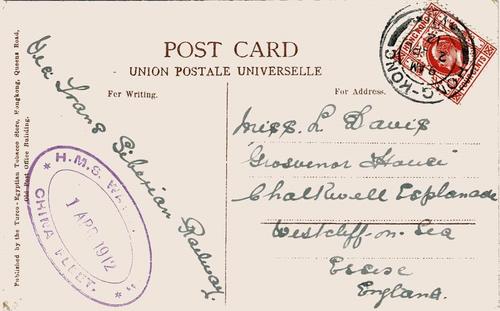 POST CARD
UNION POSTALE UNIVERSELLE
For Writing.
For Address.
Via Trans Siberian Railway.
Miss. L Davis
Grosvenor House
Chalkwell Esplanade
Westcliff-on-Sea
Essex
England.
H.M.S.
1 APR 1912
CHINA FLEET.
HONG-KONG
9 AM
2
12
HONG KONG
FOUR CENTS
Published by the Turco-Egyptian Tobacco Store, Hongkong, Queens Road,
Old Post Office Building.